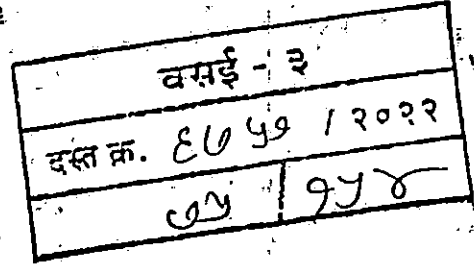 वसई - ३
दस्त क्र. ६७५१ / २०२२
७५ | १५४